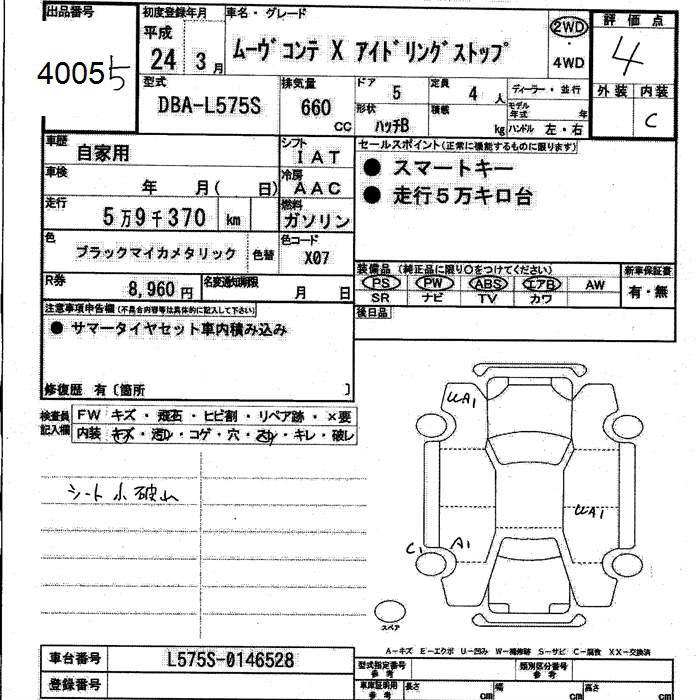 出品番号
40055
初度登録年月
平成
24 3月
車名・グレード
ムーヴ コンテ X アイドリングストップ
2WD
・
4WD
評価点
4
外装 内装
C
型式
DBA-L575S
排気量
660
CC
ドア 5
定員 4 人
ディーラー・並行
形状 ハッチB
積載 kg
モデル年式 年
ハンドル 左・右
車歴 自家用
シフト IAT
車検 年 月( 日)
冷房 AAC
走行 5万9千370 km
燃料 ガソリン
色 ブラックマイカメタリック 色替
色コード X07
R券 8,960円
名変通知期限 月 日
セールスポイント(正常に機能するものに限ります)
● スマートキー
● 走行5万キロ台
装備品 (純正品に限り○をつけてください)
新車保証書
PS PW ABS エアB AW
SR ナビ TV カワ
有・無
後日品
注意事項申告欄(不具合内容等は具体的に記入して下さい)
● サマータイヤセット車内積み込み
修復歴 有〔箇所 〕
検査員記入欄
FW キズ・飛石・ヒビ割・リペア跡・×要
内装 キズ・汚れ・コゲ・穴・スレ・キレ・破レ
シート小破れ
UA1
UA1
C1 A1
スペア
A-キズ E-エクボ U-凹み W-補修跡 S-サビ C-腐食 XX-交換済
車台番号 L575S-0146528
登録番号
型式指定番号 参考
類別区分番号 参考
車庫証明用 参考
長さ cm
幅 cm
高さ cm